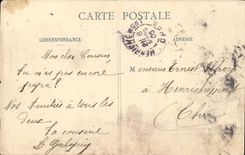 CARTE POSTALE
CORRESPONDANCE
ADRESSE
Mon cher Cousin,
Tu n'es pas encore
Monsieur Ernest
à Henrichemont
Nos Amitiés à tous les
deux
Cher
ta cousine